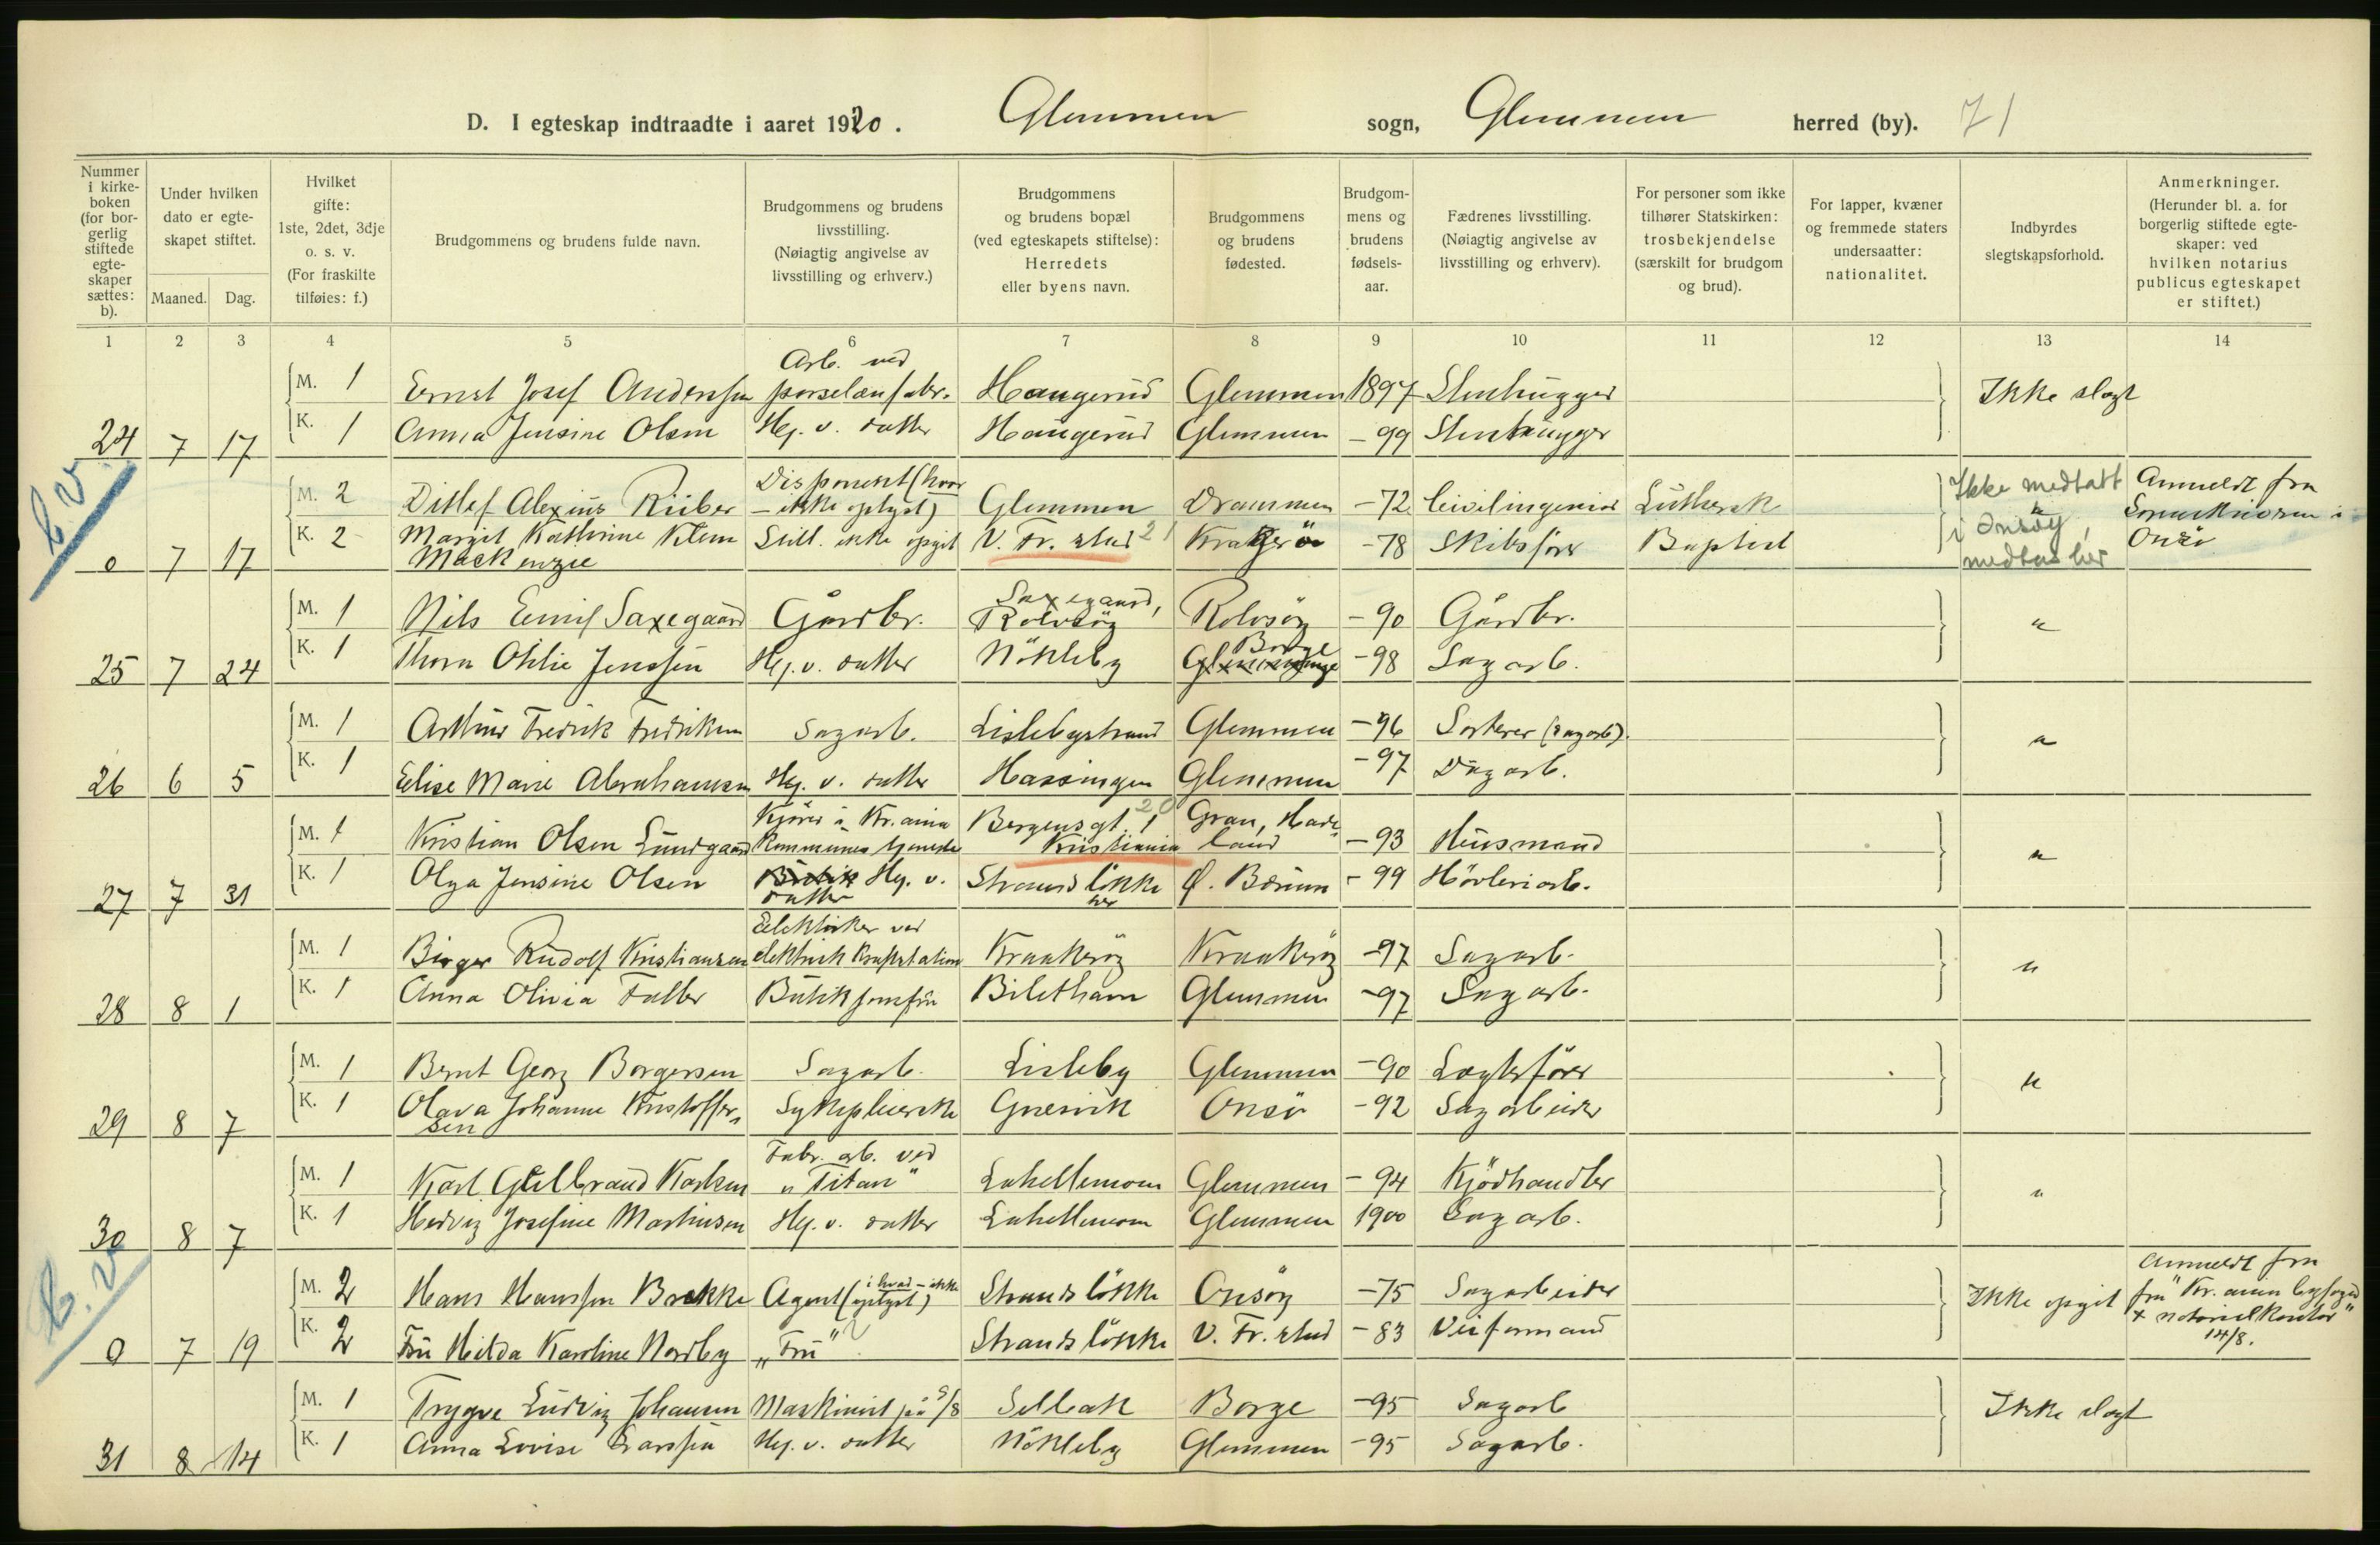 D. I egteskap indtraadte i aaret 1920. Glemmen sogn, Glemmen herred (by). 71
Nummer i kirkeboken (for borgerlig stiftede egteskaper sættes: b).
Under hvilken dato er egteskapet stiftet.
Maaned. Dag.
Hvilket gifte: 1ste, 2det, 3dje o. s. v. (For fraskilte tilføies: f.)
Brudgommens og brudens fulde navn.
Brudgommens og brudens livsstilling. (Nøiagtig angivelse av livsstilling og erhverv.)
Brudgommens og brudens bopæl (ved egteskapets stiftelse): Herredets eller byens navn.
Brudgommens og brudens fødested.
Brudgommens og brudens fødselsaar.
Fædrenes livsstilling. (Nøiagtig angivelse av livsstilling og erhverv).
For personer som ikke tilhører Statskirken: trosbekjendelse (særskilt for brudgom og brud).
For lapper, kvæner og fremmede staters undersaatter: nationalitet.
Indbyrdes slegtskapsforhold.
Anmerkninger. (Herunder bl. a. for borgerlig stiftede egteskaper: ved hvilken notarius publicus egteskapet er stiftet.)
1 2 3 4 5 6 7 8 9 10 11 12 13 14
M. 1 Ernst Josef Anderssen Arb. ved porselænfabr. Haugerud Glemmen 1897 Stenhugger Ikke slegt
24 7 17 K. 1 Anna Jensine Olsen Hj. v. datter Haugerud Glemmen -99 Stenhugger
b.v.
M. 2 Ditlef Alexius Riiber Disponent (hvor - ikke oplyst) Glemmen Drammen -72 Civilingeniør Luthersk Ikke medtatt i Onsøy, medtas her Anmeldt fra Sorenskriveren i Onsø
0 7 17 K. 2 Margit Kathrine Klem Mackenzie Still. ikke opgit V. Fr.stad 21 Kragerø -78 Skibsfører Baptist
M. 1 Nils Emil Saxegaard Gårdbr. Saxegaard, Rolvsöy Rolvsöy -90 Gårdbr. "
25 7 24 K. 1 Thora Otilie Jenssen Hj. v. datter Nökleby Borge -98 Sagarb.
M. 1 Arthur Fredrik Fredriksen Sagarb. Lislebystrand Glemmen -96 Sorterer (sagarb). "
26 6 5 K. 1 Elise Marie Abrahamsen Hj. v. datter Hassingen Glemmen -97 Dagarb.
M. 1 Kristian Olsen Lundgaard Kjører i Kr.ania Kommunes tjeneste Bergensgt. 1 20 Kristiania Gran, Hadeland -93 Husmand "
27 7 31 K. 1 Olga Jensine Olsen Butik Hj. v. datter Strandslökke her Ö. Bærum -99 Hövleriarb.
M. 1 Birger Rudolf Kristiansen Elektriker ved elektrisk kraftstation Kraakeröy Kraakeröy -97 Sagarb. "
28 8 1 K. 1 Anna Olivia Faller Butikjomfru Biletham Glemmen -97 Sagarb.
M. 1 Bernt Georg Borgersen Sagarb. Lisleby Glemmen -90 Lægterfører "
29 8 7 K. 1 Olava Johanne Kristoffersen Sykepleierske Onsö -92 Sagarbeider
M. 1 Karl Gulbrand Karlsen Fabr. arb. ved "Titan" Lahellemoen Glemmen -94 Kjödhandler "
30 8 7 K. 1 Hedvig Josefine Martinsen Hj. v. datter Lahellemoen Glemmen 1900 Sagarb.
b.v.
M. 2 Hans Hanssen Brekke Agent (i hvad - ikke oplyst) Strandslökke Onsöy -75 Sagarbeider Ikke opgit Anmeldt fra fra "Kr.ania byfoged + notarialkontor" 14/8.
0 7 19 K. 2 Fru Hilda Karoline Nordby "Fru" Strandslökke V. Fr.stad -83 Veiformand
M. 1 Trygve Ludvig Johansen Maskinist på S/S Selbak Borge -95 Sagarb Ikke slegt
31 8 14 K. 1 Anna Lovise Larssen Hj. v. datter Nökleby Glemmen -95 Sagarb.